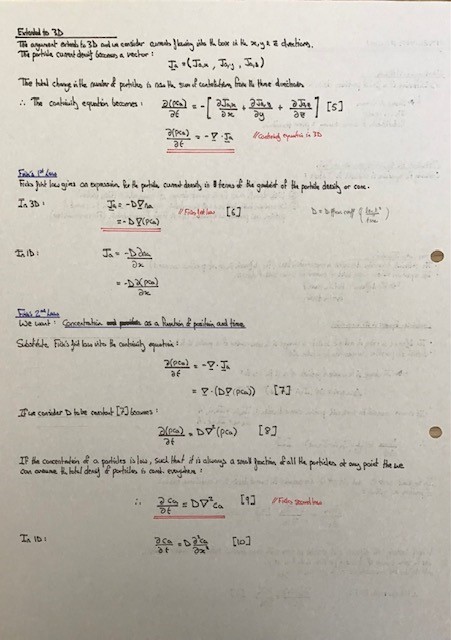 Extended to 3D
The argument extends to 3D and we consider currents flowing into the box in the x, y & z directions.
The particle current density becomes a vector:
J̲ₐ = (Jₐ,ₓ , Jₐ,y , Jₐ,z)
The total change in the number of particles is now the sum of contributions from the three directions
∴ The continuity equation becomes: ∂(ρcₐ)/∂t = -[∂Jₐ,ₓ/∂x + ∂Jₐ,y/∂y + ∂Jₐ,z/∂z] [5]
∂(ρcₐ)/∂t = -∇̲·J̲ₐ //Continuity equation in 3D
Fick's 1st Law
Ficks first law gives an expression for the particle current density in terms of the gradient of the particle density or conc.
In 3D: J̲ₐ = -D∇̲nₐ //Ficks first law [6] D = Diffusion coeff
= -D∇̲(ρcₐ)
In 1D: Jₐ = -D∂nₐ/∂x
= -D∂(ρcₐ)/∂x
Ficks 2nd Law
We want: Concentration as a function of position and time
Substitute Fick's first law into the continuity equation:
∂(ρcₐ)/∂t = -∇̲·J̲ₐ
= ∇̲·(D∇̲(ρcₐ)) [7]
If we consider D to be constant [7] becomes:
∂(ρcₐ)/∂t = D∇²(ρcₐ) [8]
If the concentration of a particles is low, such that it is always a small fraction of all the particles at any point then we
can assume the total density of particles is const. everywhere:
∴ ∂cₐ/∂t = D∇²cₐ [9] //Ficks second law
In 1D: ∂cₐ/∂t = D∂²cₐ/∂x² [10]